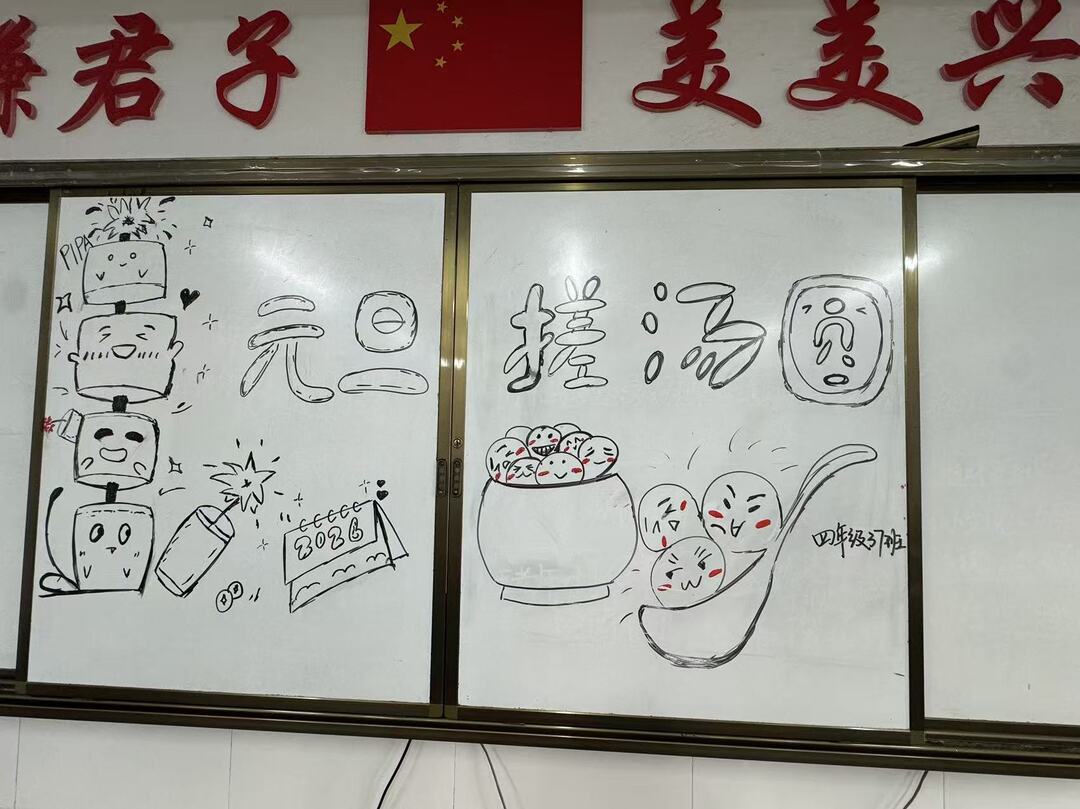 谦君子 美美兴
PIPA
元旦 搓汤圆
2026
四年级37班